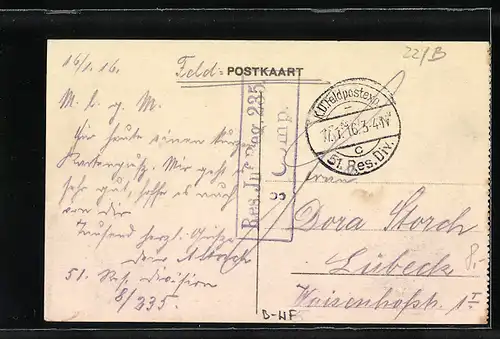 16/1.16.
Feld= POSTKAART
22/B
K.D.Feldpostexp.
17.1.16.3-4N
c
51. Res. Div.
Res. Inf. Reg. 235.
8 Comp.
M. l. g. M.
Für heute einen kurzen
Kartengruß. Mir geht es
sehr gut, hoffe es auch
von dir
Tausend herzl. Grüße
dein
51. Res. Division
8/235.
Frau
Dora Storch
Lübeck
8,-
Waisenhofstr. 1
B-WF